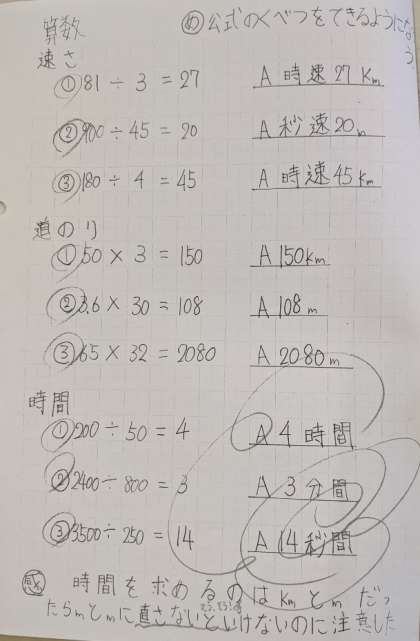 算数
め 公式のくべつをできるようになろう
速さ
① 81 ÷ 3 = 27 A 時速27km
② 900 ÷ 45 = 20 A 秒速20m
③ 180 ÷ 4 = 45 A 時速45km
道のり
① 50 × 3 = 150 A 150km
② 3.6 × 30 = 108 A 108m
③ 65 × 32 = 2080 A 2080m
時間
① 200 ÷ 50 = 4 A 4時間
② 2400 ÷ 800 = 3 A 3分間
③ 3500 ÷ 250 = 14 A 14秒間
時間を求めるのはkmとmだっ
たらmとmに直さないといけないのに注意した